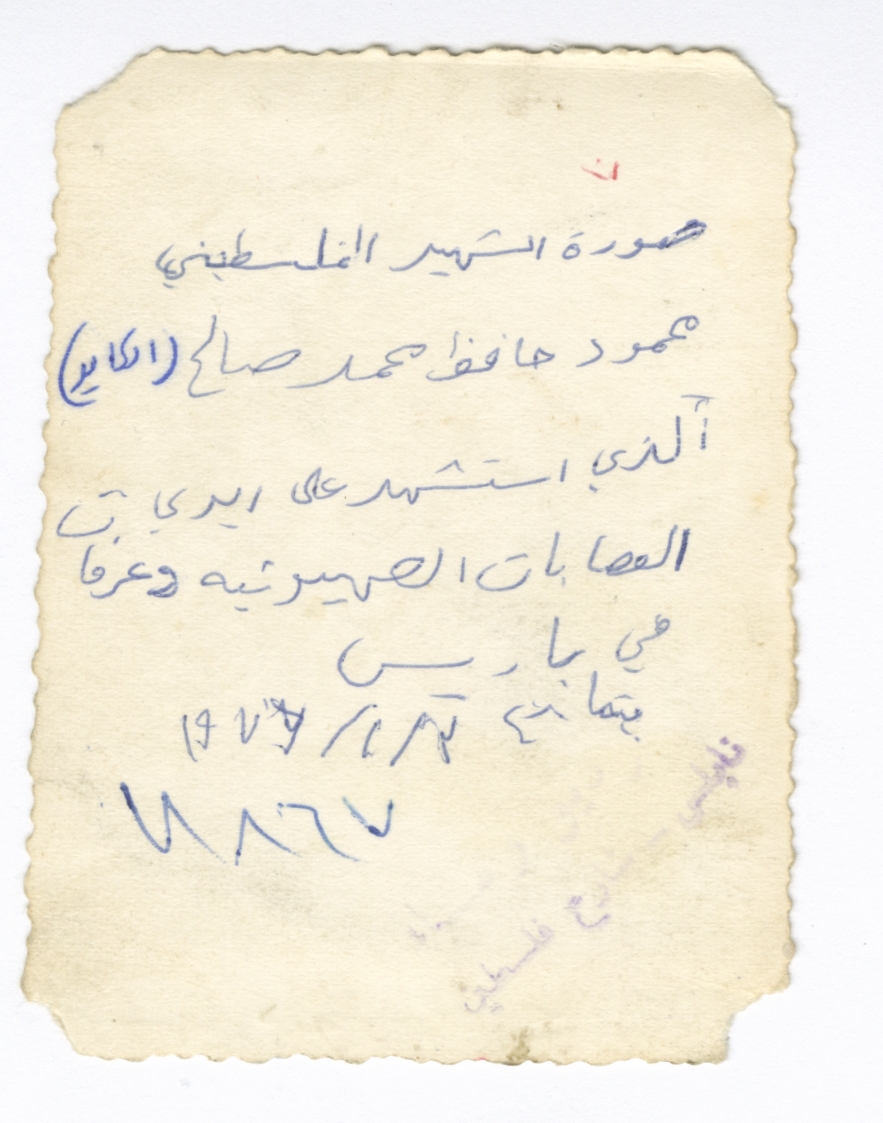 صورة الشهيد الفلسطيني
محمود حافظ محمد صالح (الكايد)
الذي استشهد على ايدي
العصابات الصهيونيه وعرفات
في باريس
بتاريخ
نابلس - شارع فلسطين